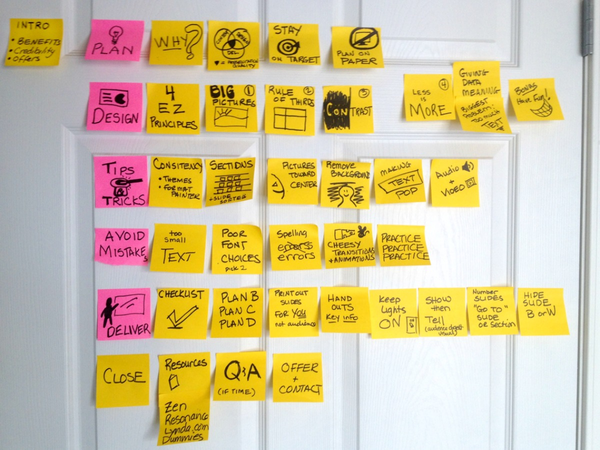 INTRO
• BENEFITS
• Credibility
• Offers
PLAN
WHY?
STAY
ON TARGET
PLAN ON
PAPER
DESIGN
4
EZ
PRINCIPLES
BIG 1
PICTURES
2
RULE OF THIRDS
3
CONTRAST
4
LESS
IS
MORE
GIVING
DATA
MEANING
BIGGEST
PROBLEM:
TOO MUCH
TEXT
BONUS
Have Fun!
TIPS
TRICKS
CONSITENCY
• THEMES
• FORMAT
PAINTER
SECTIONS
+ SLIDE SORTER
PICTURES
TOWARD
CENTER
Remove
BACKGROUND
MAKING
TEXT
POP
Audio
+
VIDEO
AVOID
MISTAKES
too
Small
TEXT
POOR
FONT
CHOICES
PICK 2
Spelling
errors
CHEESY
TRANSITIONS
+ ANIMATIONS
PRACTICE
PRACTICE
PRACTICE
DELIVER
CHECKLIST
PLAN B
PLAN C
PLAN D
PRINT OUT
SLIDES
FOR YOU
not audience
HAND
OUTS
Key info
Keep
Lights
ON
Show
then
Tell
Number
SLIDES
"GO TO"
SLIDE
OR SECTION
HIDE
SLIDE
B or W
CLOSE
Resources
Zen
Resonance
Lynda.com
Dummies
Q&A
(IF TIME)
OFFER
+
CONTACT